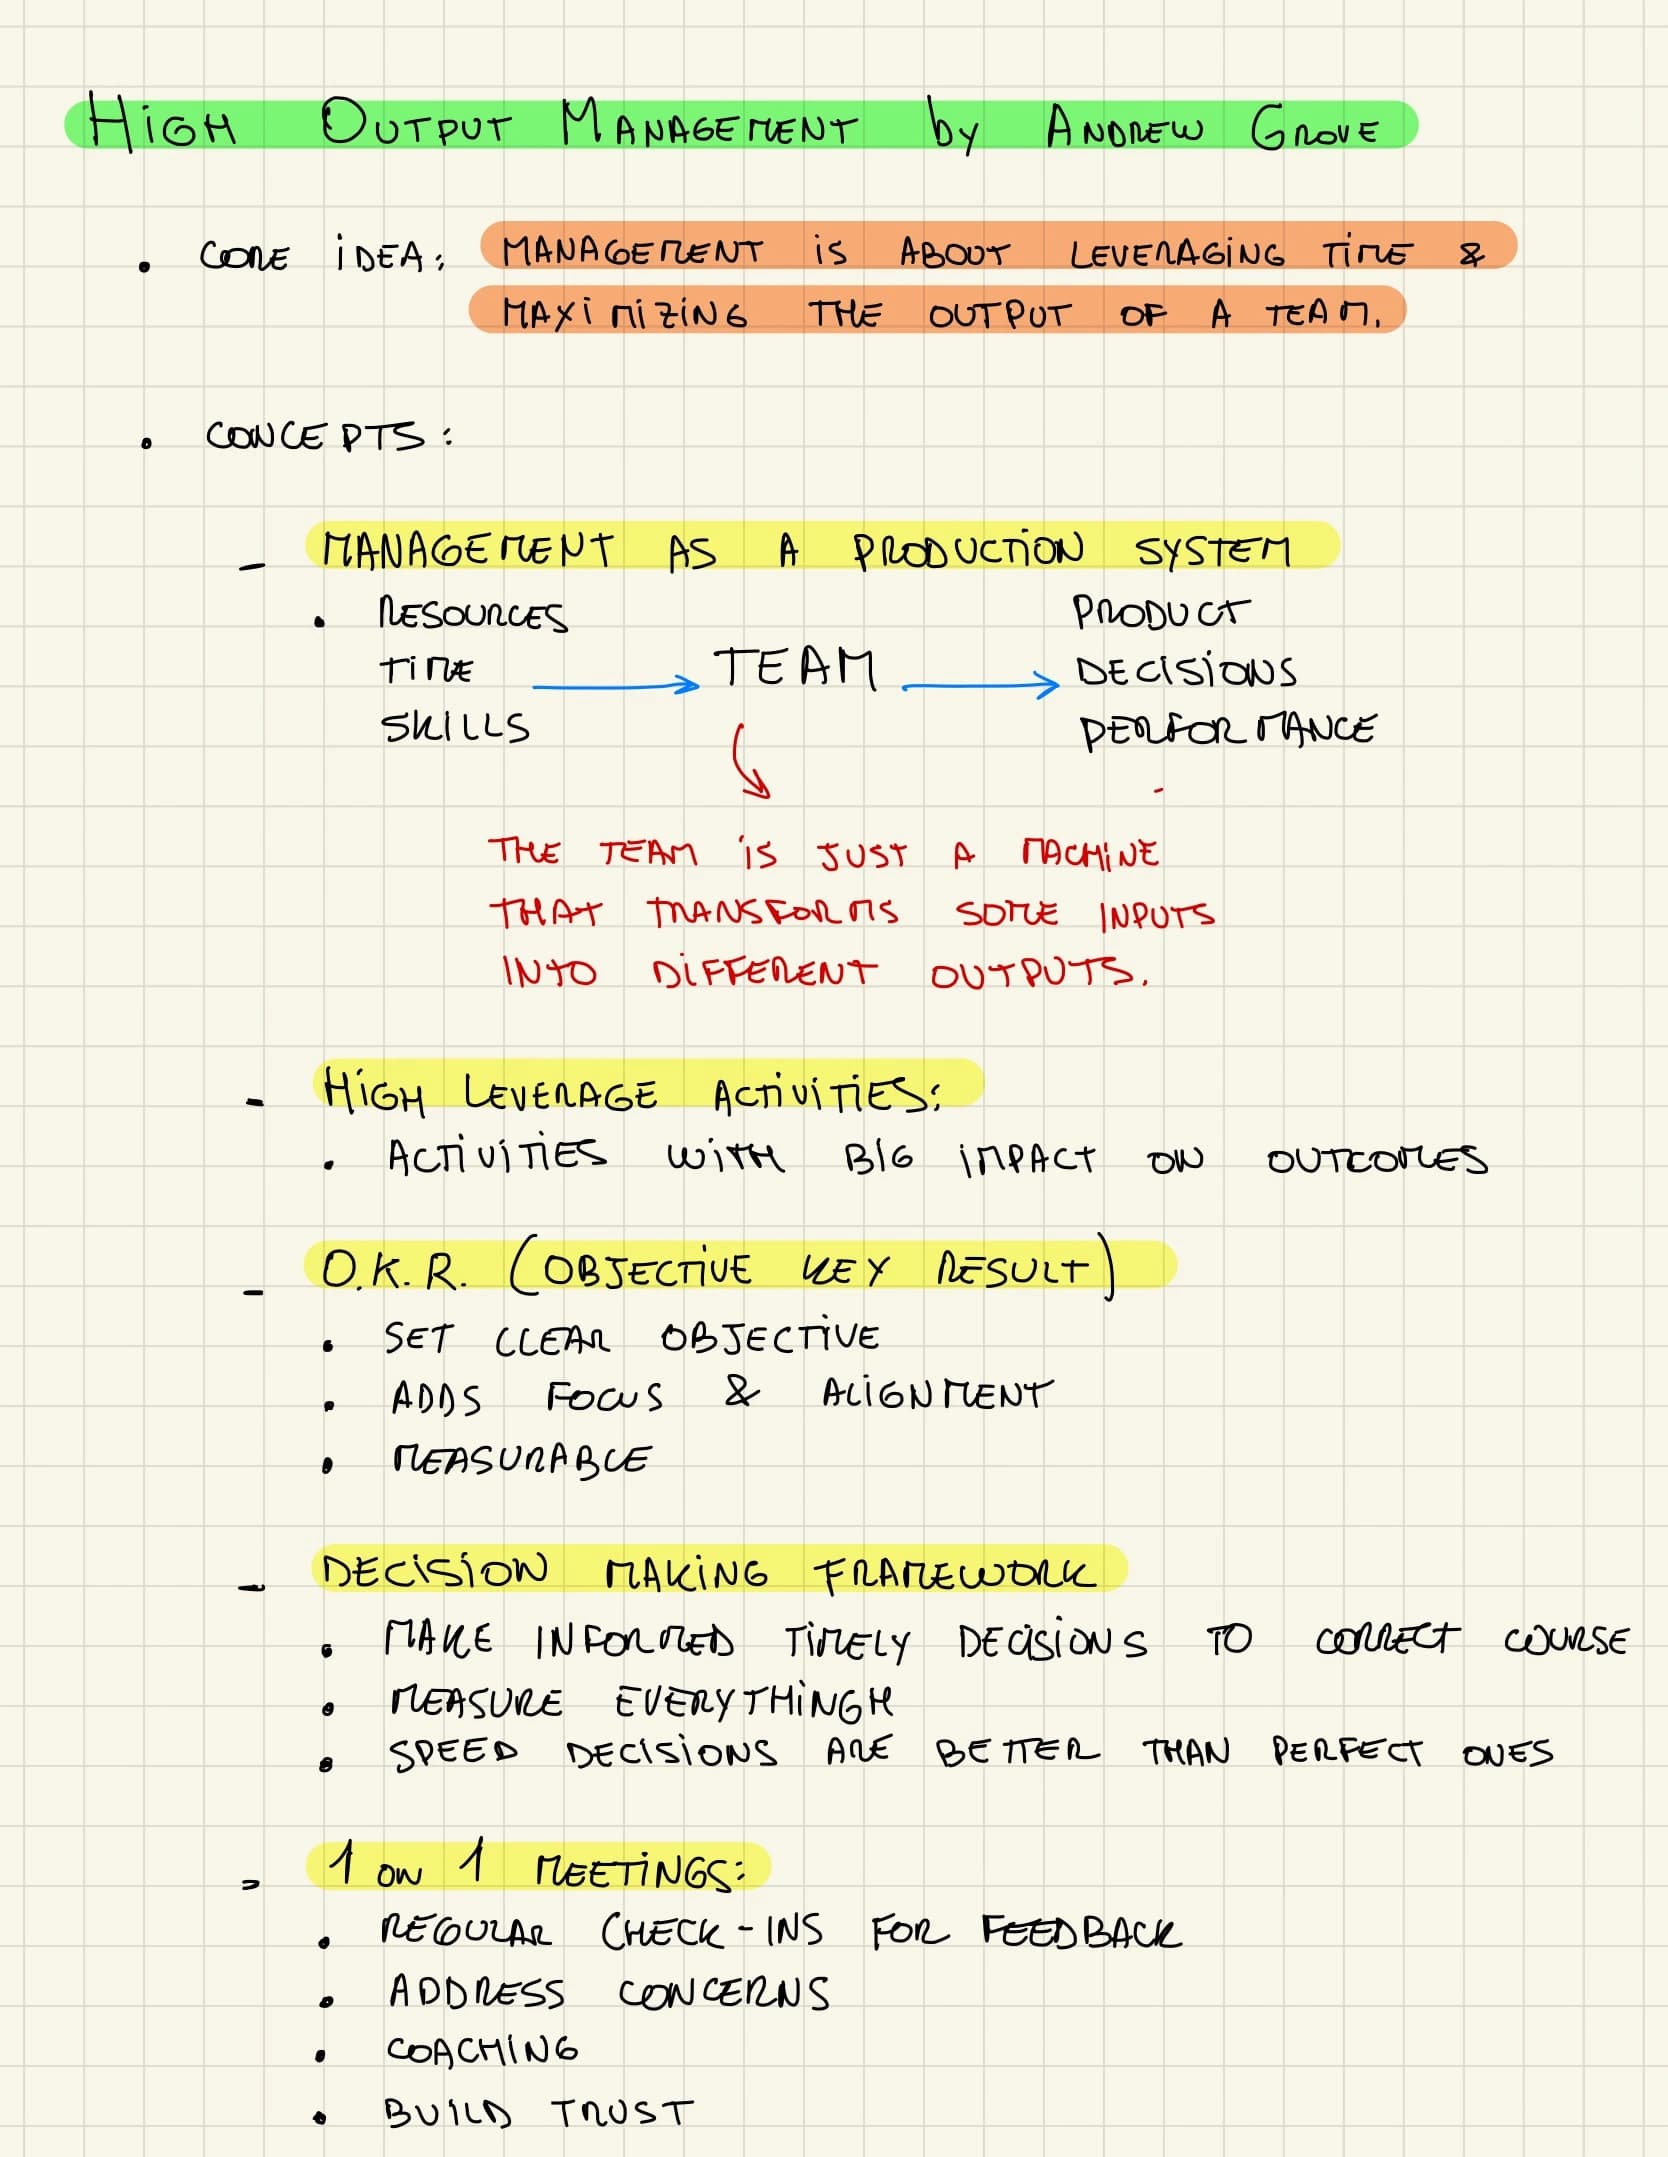 High Output Management by Andrew Grove
• CORE IDEA: MANAGEMENT IS ABOUT LEVERAGING TIME &
MAXIMIZING THE OUTPUT OF A TEAM.
• CONCEPTS:
- MANAGEMENT AS A PRODUCTION SYSTEM
• RESOURCES
TIME
SKILLS
→ TEAM →
PRODUCT
DECISIONS
PERFORMANCE
THE TEAM IS JUST A MACHINE
THAT TRANSFORMS SOME INPUTS
INTO DIFFERENT OUTPUTS.
- HIGH LEVERAGE ACTIVITIES:
• ACTIVITIES WITH BIG IMPACT ON OUTCOMES
- O.K.R. (OBJECTIVE KEY RESULT)
• SET CLEAR OBJECTIVE
• ADDS FOCUS & ALIGNMENT
• MEASURABLE
- DECISION MAKING FRAMEWORK
• MAKE INFORMED TIMELY DECISIONS TO CORRECT COURSE
• MEASURE EVERYTHINGH
• SPEED DECISIONS ARE BETTER THAN PERFECT ONES
- 1 ON 1 MEETINGS:
• REGULAR CHECK-INS FOR FEEDBACK
• ADDRESS CONCERNS
• COACHING
• BUILD TRUST